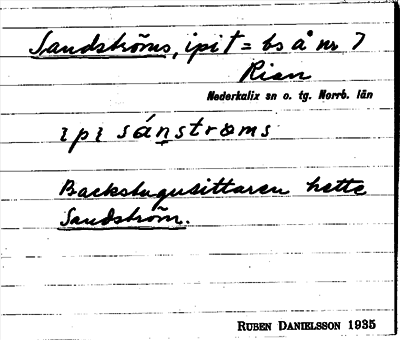 Sandströms, ipi† = bs å nr 7
Rian
Nederkalix sn o. tg. Norrb. län
ıpı sánstrɷms
Backstugusittaren hette
Sandström.
RUBEN DANIELSSON 1935